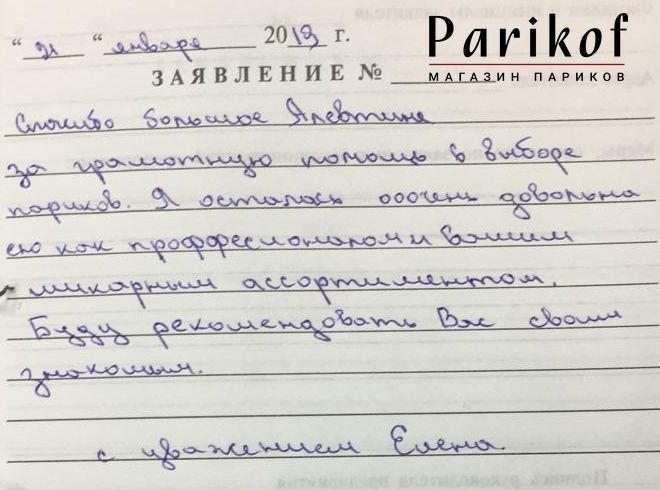 Parikof
МАГАЗИН ПАРИКОВ
"21" января 2019 г.
ЗАЯВЛЕНИЕ №
Спасибо большое Алевтине
за грамотную помощь в выборе
париков. Я осталась ооочень довольна
ею как проффесионалом и вашим
шикарным ассортиментом.
Буду рекомендовать Вас своим
знакомым.
с уважением Елена